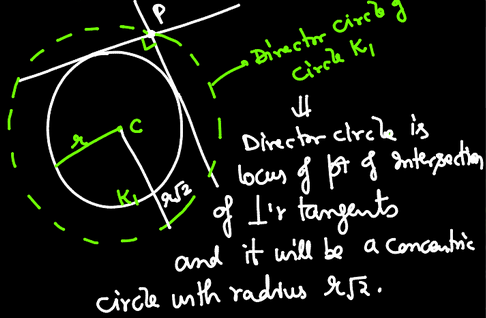 P
Director circle of
circle K₁
r
C
K₁
r√2
⇓
Director circle is
locus of pt of intersection
of ⊥'r tangents
and it will be a concentric
circle with radius r√2.